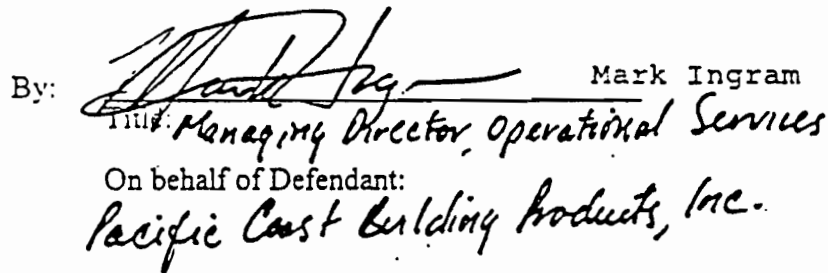 By: Mark Ingram Mark Ingram
Title: Managing Director, Operational Services
On behalf of Defendant:
Pacific Coast Building Products, Inc.